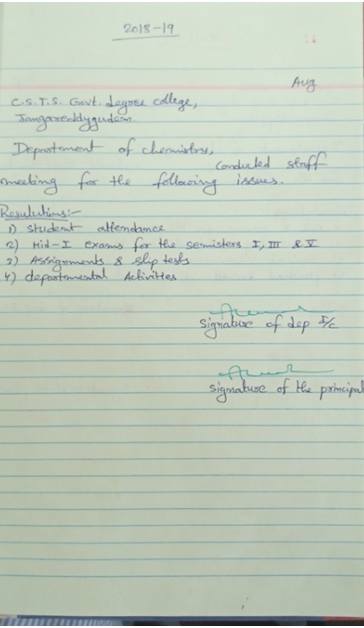 2018-19
Aug
C.S.T.S. Govt. degree college,
Jangareddygudem
Departement of chemistry,
Conducted staff
meeting for the following issues.
Resulutions:-
1) Student attendance
2) Mid-I exams for the semisters I, III & V
3) Assignments & slip tests
4) departmental Activities
Signature of dep I/c
Signature of the principal